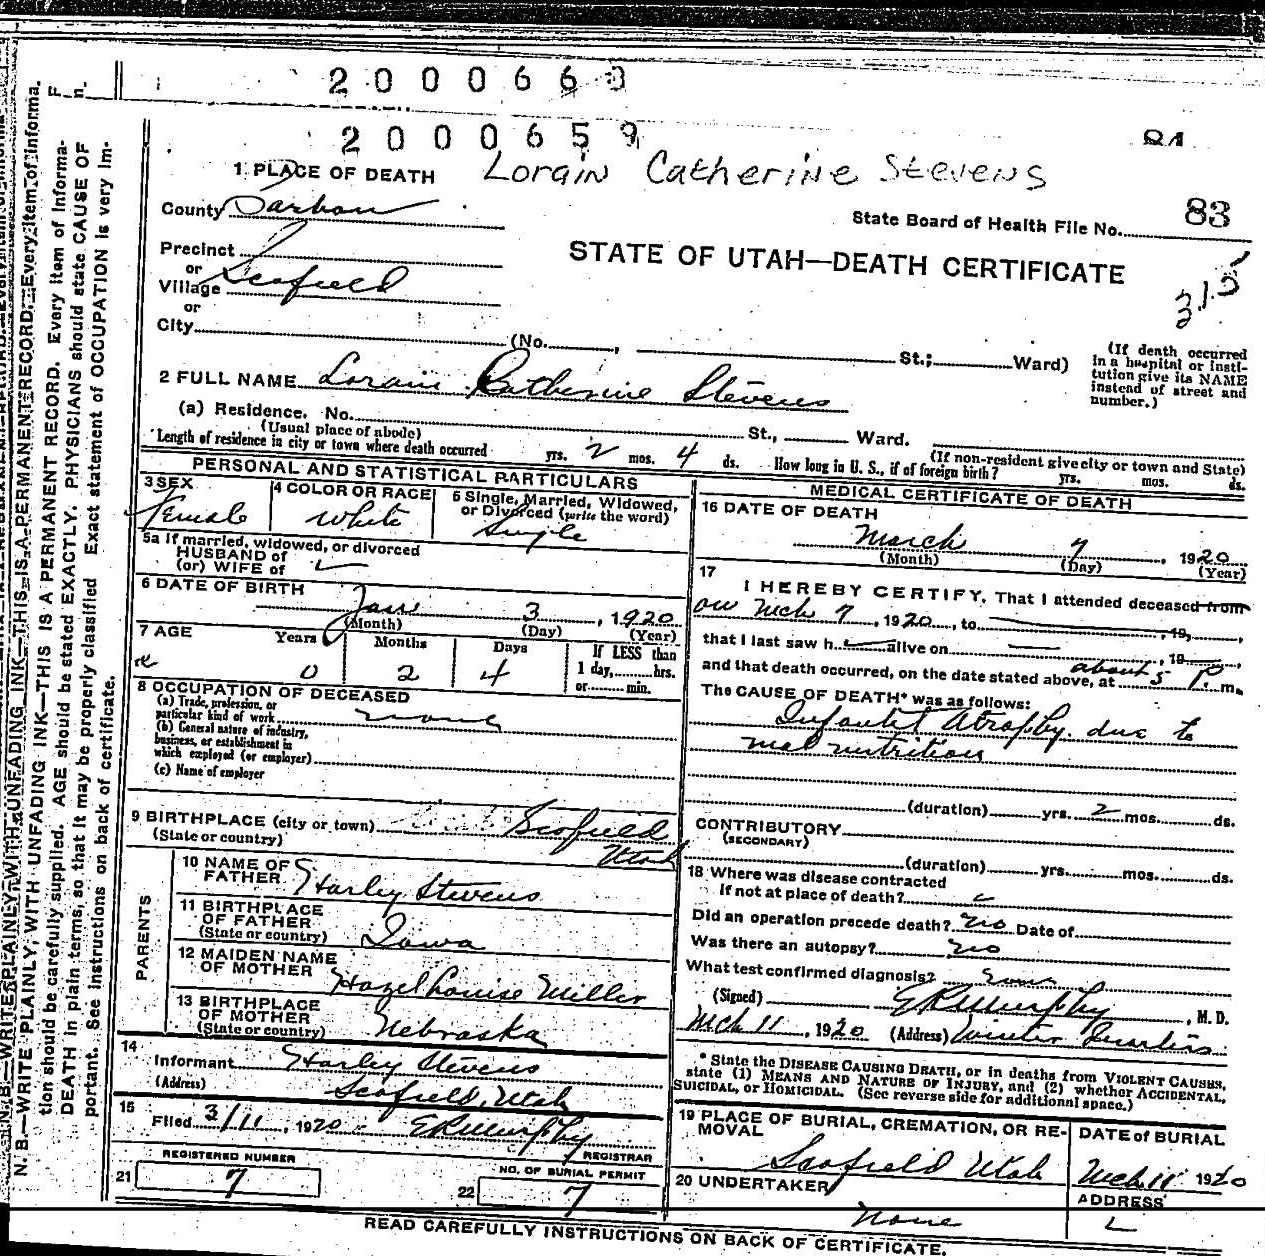 2000663
2000659
1 PLACE OF DEATH Lorain Catherine Stevens
County Carbon
State Board of Health File No. 83
STATE OF UTAH—DEATH CERTIFICATE
315
Precinct
or
Village Scofield
or
City (No. , St.; Ward)
(If death occurred in a hospital or institution give its NAME instead of street and number.)
2 FULL NAME Lorain Catherine Stevens
(a) Residence. No. St., Ward.
(Usual place of abode)
(If non-resident give city or town and State)
Length of residence in city or town where death occurred yrs. 2 mos. 4 ds. How long in U. S., if of foreign birth? yrs. mos. ds.
PERSONAL AND STATISTICAL PARTICULARS
3 SEX Female
4 COLOR OR RACE White
5 Single, Married, Widowed, or Divorced (write the word) Single
5a If married, widowed, or divorced
HUSBAND of
(or) WIFE of
6 DATE OF BIRTH
Jan 3, 1920
(Month) (Day) (Year)
7 AGE Years Months Days If LESS than
0 2 4 1 day, hrs.
or min.
8 OCCUPATION OF DECEASED
(a) Trade, profession, or
particular kind of work none
(b) General nature of industry,
business, or establishment in
which employed (or employer)
(c) Name of employer
9 BIRTHPLACE (city or town) Scofield
(State or country) Utah
PARENTS
10 NAME OF FATHER Harley Stevens
11 BIRTHPLACE OF FATHER (State or country) Iowa
12 MAIDEN NAME OF MOTHER Hazel Louise Miller
13 BIRTHPLACE OF MOTHER (State or country) Nebraska
14
Informant Harley Stevens
(Address) Scofield, Utah
15
Filed 3/11, 1920 E R Murphy
REGISTRAR
REGISTERED NUMBER
21 7
NO. OF BURIAL PERMIT
22 7
MEDICAL CERTIFICATE OF DEATH
16 DATE OF DEATH
March 7, 1920
(Month) (Day) (Year)
17
I HEREBY CERTIFY, That I attended deceased from
on Mch 7, 1920, to , 19 ,
that I last saw h alive on , 19 ,
and that death occurred, on the date stated above, at about 5 P. m.
The CAUSE OF DEATH* was as follows:
Infantil Atrophy. due to
mal nutrition
(duration) yrs. 2 mos. ds.
CONTRIBUTORY
(SECONDARY)
(duration) yrs. mos. ds.
18 Where was disease contracted
if not at place of death?
Did an operation precede death? no Date of
Was there an autopsy? no
What test confirmed diagnosis?
(Signed) E R Murphy, M. D.
Mch 11, 1920 (Address) Winter Quarters
* State the DISEASE CAUSING DEATH, or in deaths from VIOLENT CAUSES,
state (1) MEANS AND NATURE OF INJURY, and (2) whether ACCIDENTAL,
SUICIDAL, or HOMICIDAL. (See reverse side for additional space.)
19 PLACE OF BURIAL, CREMATION, OR REMOVAL
Scofield Utah
DATE of BURIAL
Mch 11 1920
20 UNDERTAKER
None
ADDRESS
READ CAREFULLY INSTRUCTIONS ON BACK OF CERTIFICATE.
N. B.—WRITE PLAINLY, WITH UNFADING INK—THIS IS A PERMANENT RECORD. Every item of informa-
tion should be carefully supplied. AGE should be stated EXACTLY. PHYSICIANS should state CAUSE OF
DEATH in plain terms, so that it may be properly classified. Exact statement of OCCUPATION is very im-
portant. See instructions on back of certificate.